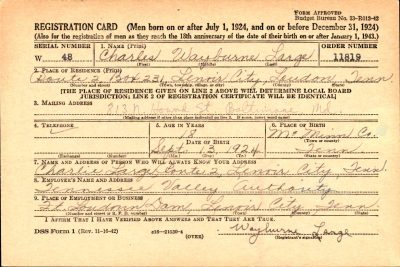 FORM APPROVED
Budget Bureau No. 33-R012-42
REGISTRATION CARD (Men born on or after July 1, 1924, and on or before December 31, 1924)
(Also for the registration of men as they reach the 18th anniversary of the date of their birth on or after January 1, 1943.)
SERIAL NUMBER 1. NAME (Print) ORDER NUMBER
W 48 Charles Wayburne Large 11819
(First) (Middle) (Last)
2. PLACE OF RESIDENCE (Print)
Route 2 Box 231, Lenoir City, Loudon, Tenn
[THE PLACE OF RESIDENCE GIVEN ON LINE 2 ABOVE WILL DETERMINE LOCAL BOARD
JURISDICTION; LINE 2 OF REGISTRATION CERTIFICATE WILL BE IDENTICAL]
3. MAILING ADDRESS
[Mailing address if other than place indicated on line 2. If same, insert word same]
4. TELEPHONE 5. AGE IN YEARS 6. PLACE OF BIRTH
18 McMinn Co.
DATE OF BIRTH (Town or county)
Sept. 13, 1924 Tenn
(Exchange) (Number) (Mo.) (Day) (Yr.) (State or country)
7. NAME AND ADDRESS OF PERSON WHO WILL ALWAYS KNOW YOUR ADDRESS
Charlie Large Route 2, Lenoir City, Tenn.
8. EMPLOYER'S NAME AND ADDRESS
Tennessee Valley Authority
9. PLACE OF EMPLOYMENT OR BUSINESS
Ft. Loudoun Dam, Lenoir City, Tenn
(Number and street or R. F. D. number) (Town) (County) (State)
I AFFIRM THAT I HAVE VERIFIED ABOVE ANSWERS AND THAT THEY ARE TRUE.
DSS Form 1 (Rev. 11-16-42) (OVER) Wayburne Large
(Registrant's signature)